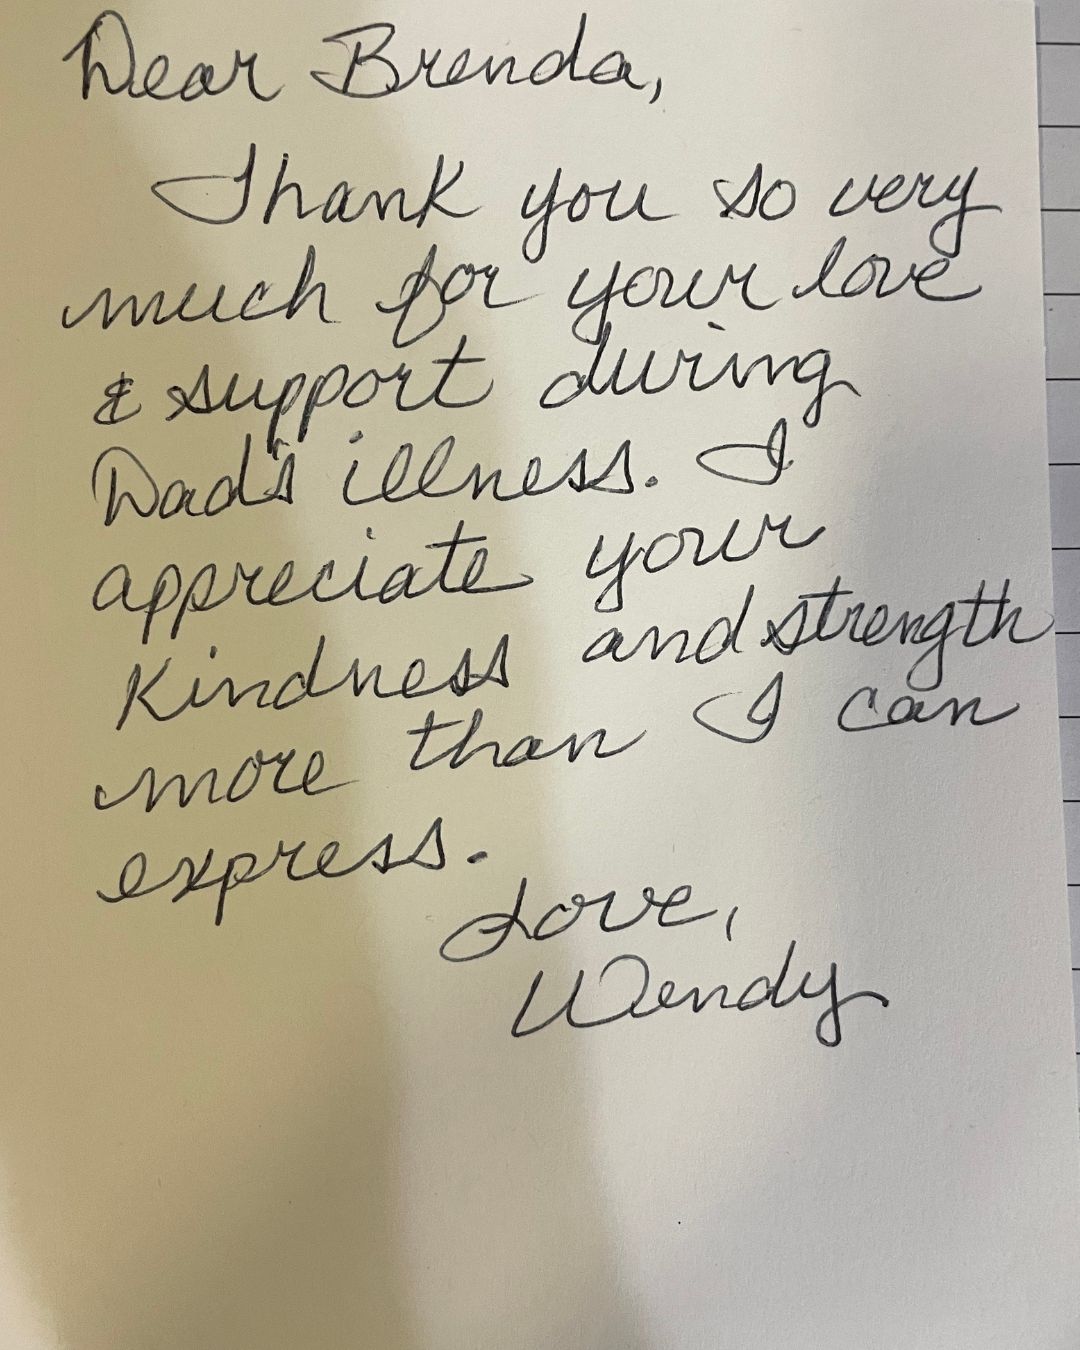 Dear Brenda,
Thank you so very
much for your love
& support during
Dad's illness. I
appreciate your
kindness and strength
more than I can
express.
Love,
Wendy